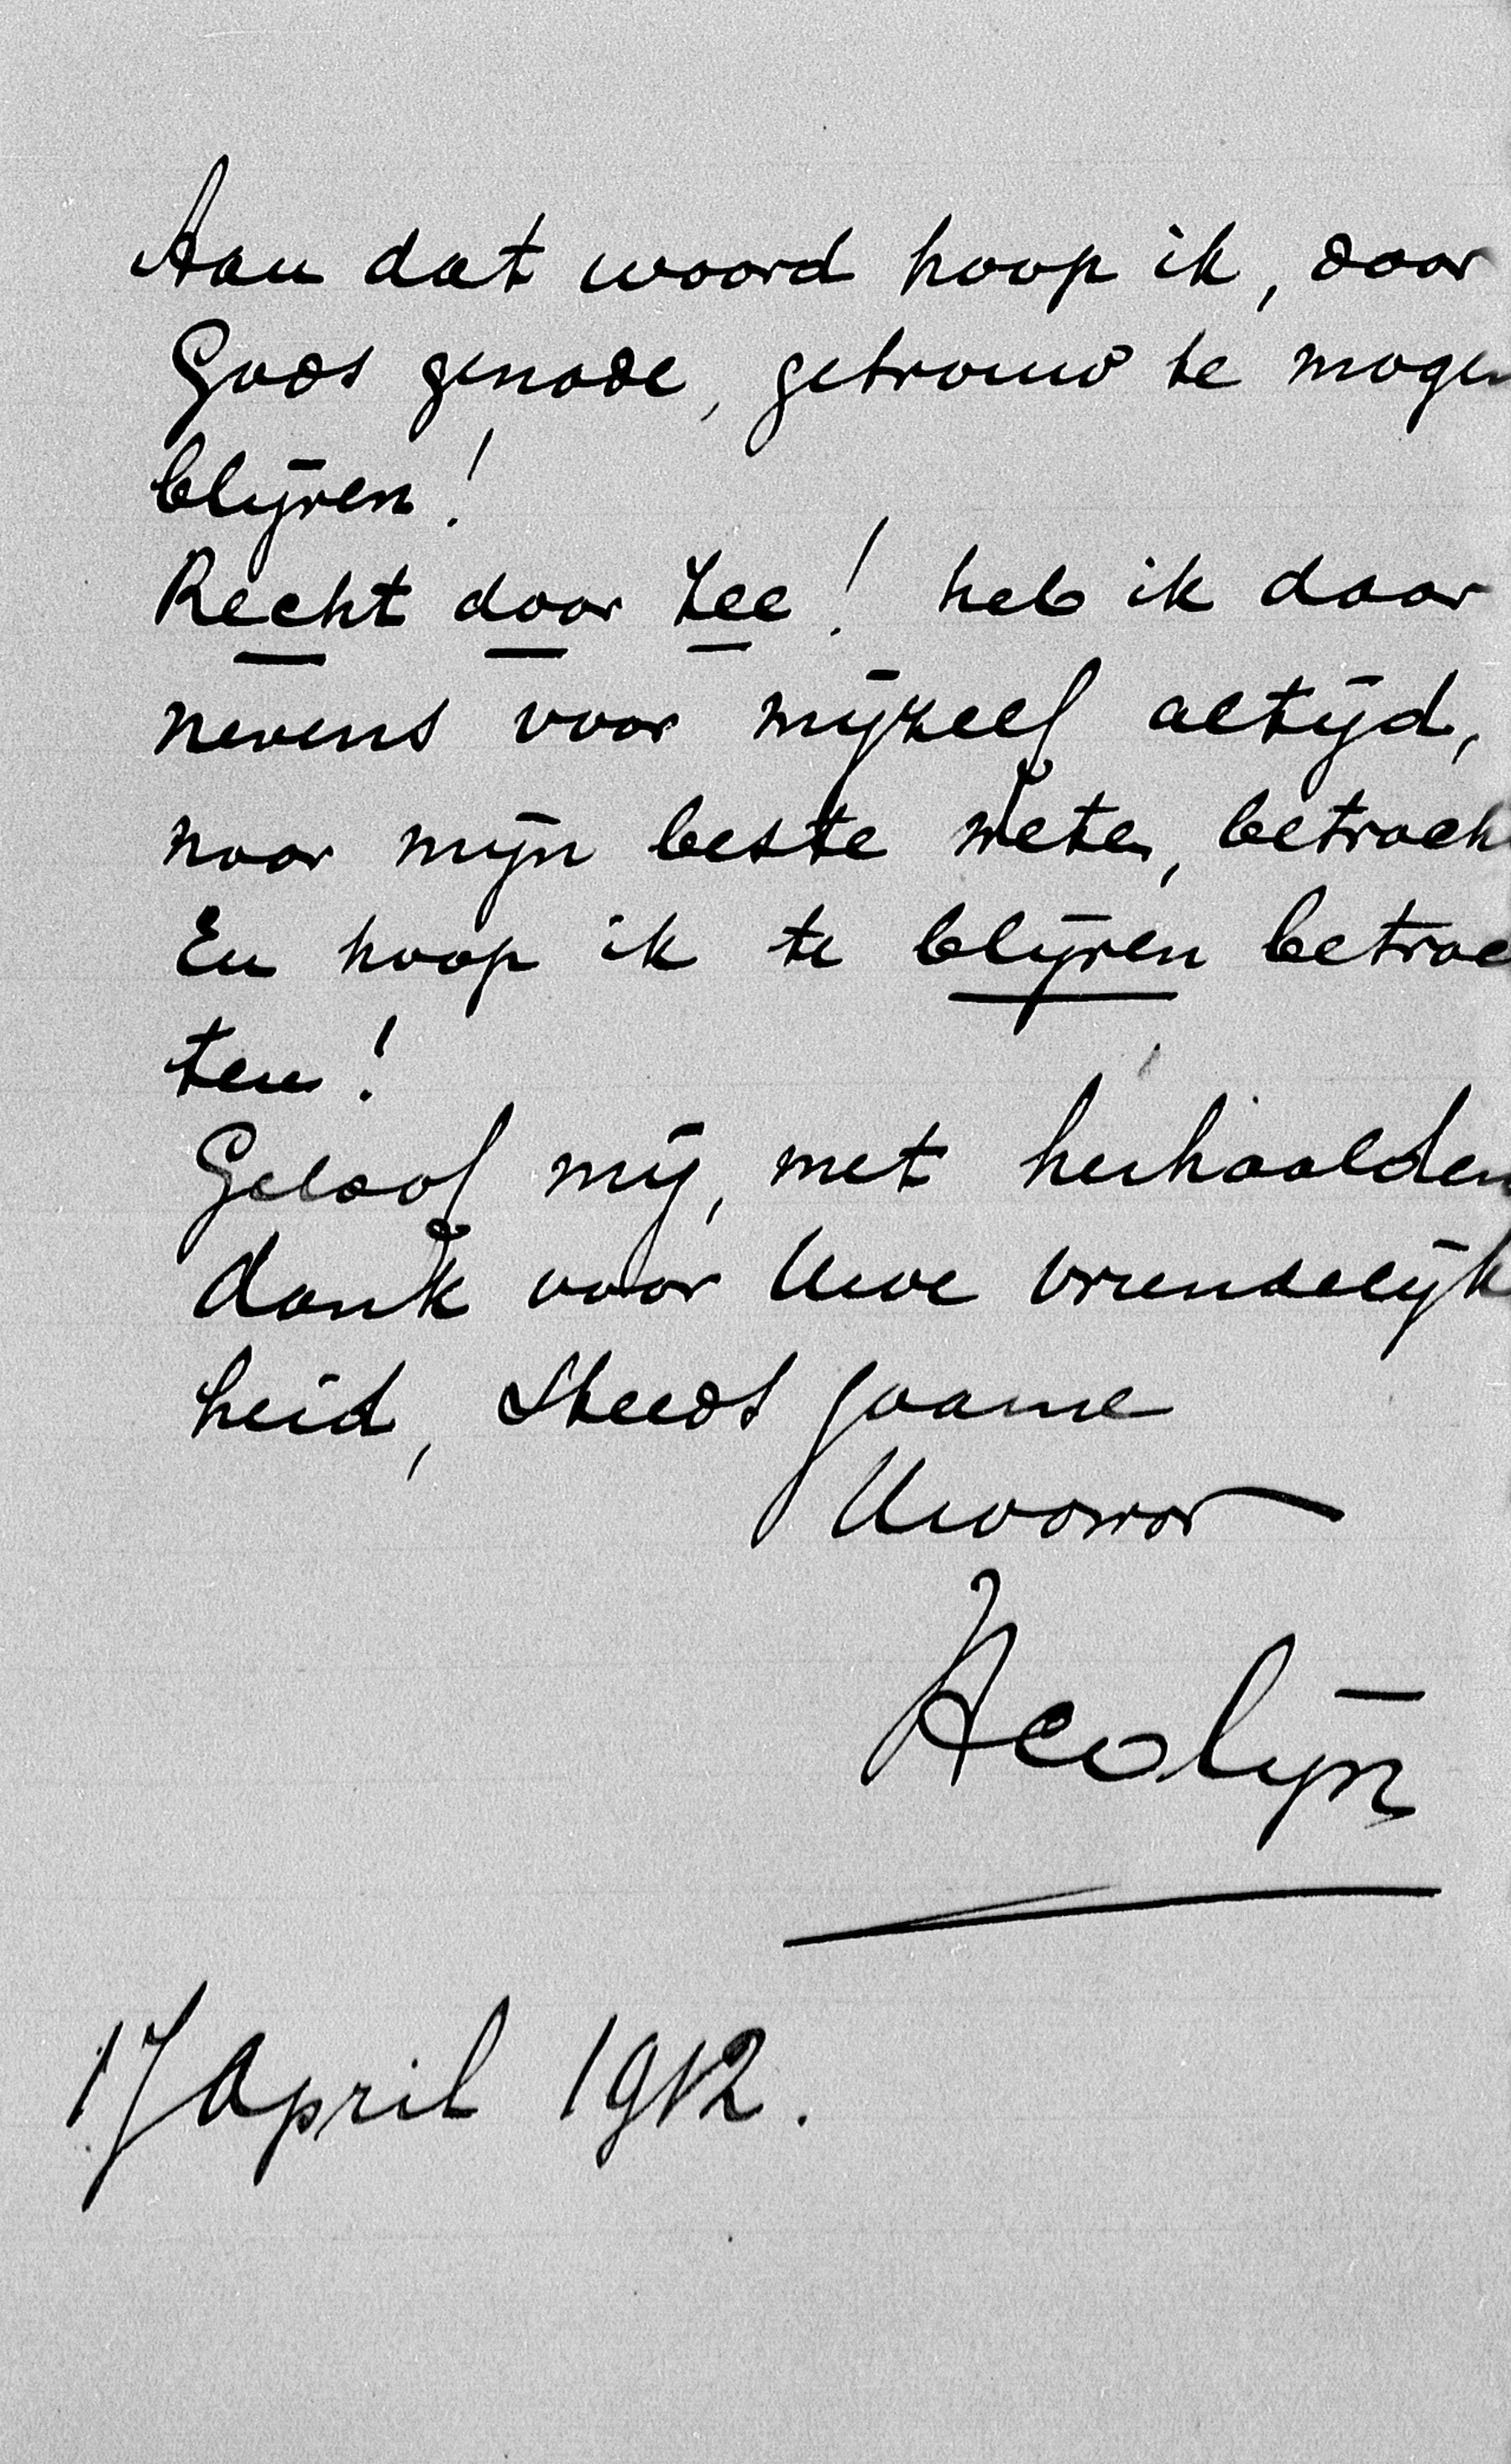 Aan dat woord hoop ik, door
Gods genade, getrouw te mogen
blijven!
Recht door Zee! heb ik daar
nevens voor mijzelf altijd,
naar mijn beste weten, betrach
En hoop ik te blijven betrac
ten!
Geloof mij, met herhaalden
dank voor Uwe vriendelijk
heid, steeds gaarne
Uwaarar
HColijn
17 April 1912.